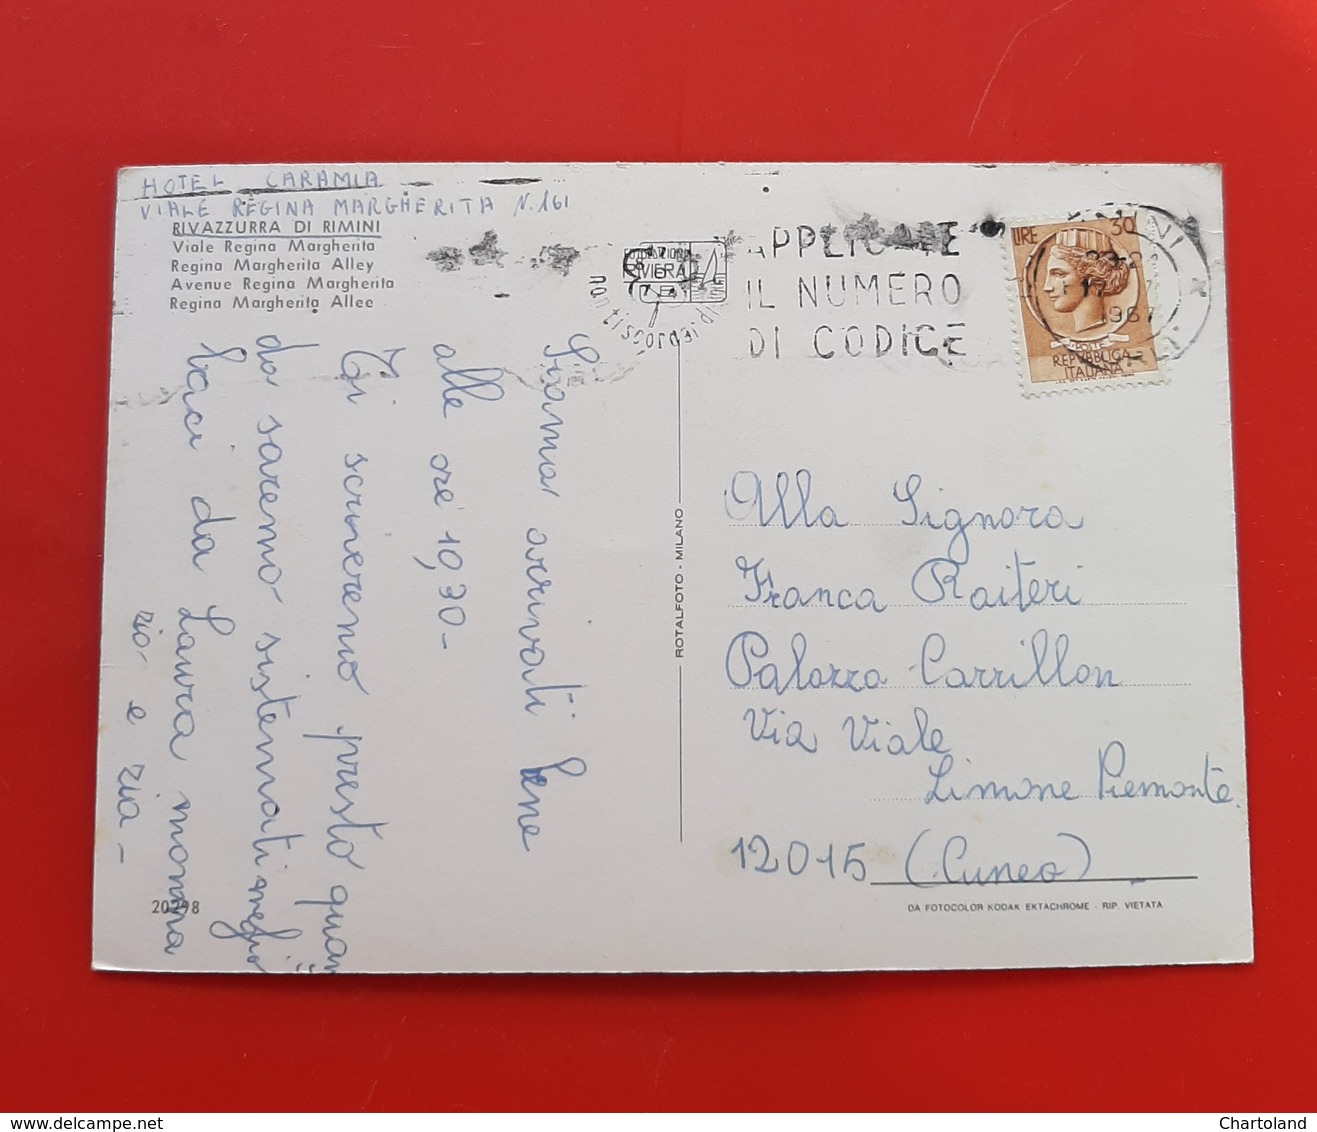 HOTEL CARAMIA
VIALE REGINA MARGHERITA N.161
RIVAZZURRA DI RIMINI
Viale Regina Margherita
Regina Margherita Alley
Avenue Regina Margherita
Regina Margherita Allee
Siamo arrivati bene
alle ore 19,30-
Ti scriveremo presto quan
do saremo sistemati meglio
baci da Laura mamma
zio e zia -
20298
ROTALFOTO - MILANO
RIVIERA
APPLICATE
IL NUMERO
DI CODICE
LIRE 30
POSTE
REPVBBLICA
ITALIANA
1967
Alla Signora
Franca Raiteri
Palazzo Carrillon
Via Viale
Limone Piemonte
12015 (Cuneo)
DA FOTOCOLOR KODAK EKTACHROME - RIP. VIETATA
Chartoland